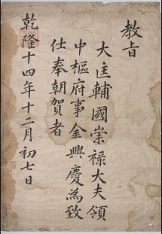 教旨
大匡輔國崇祿大夫領
中樞府事金興慶為致
仕奉朝賀者
乾隆十四年十二月初七日